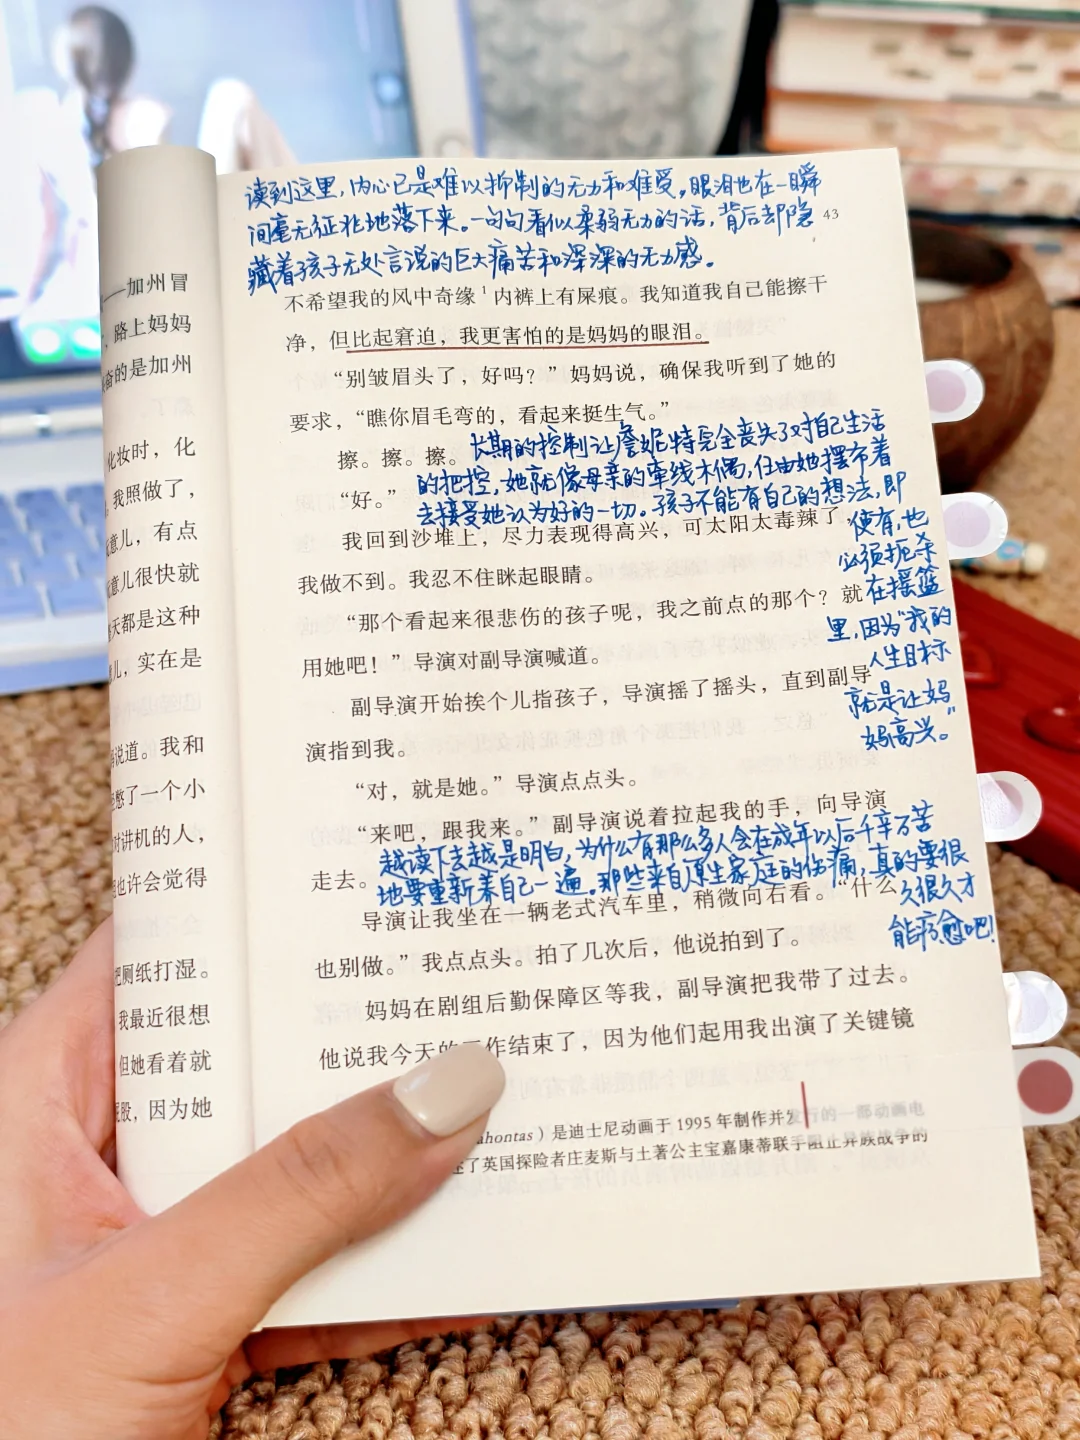 ——加州冒
，路上妈妈
奋的是加州
化妆时，化
我照做了，
意儿，有点
意儿很快就
天都是这种
儿，实在是
说道。我和
憋了一个小
对讲机的人，
也许会觉得
把厕纸打湿。
我最近很想
但她看着就
屁股，因为她
读到这里，内心已是难以抑制的无力和难受。眼泪也在一瞬
间毫无征兆地落下来。一句句看似柔弱无力的话，背后却隐
藏着孩子无处言说的巨大痛苦和深深的无力感。
43
不希望我的风中奇缘1内裤上有屎痕。我知道我自己能擦干
净，但比起窘迫，我更害怕的是妈妈的眼泪。
“别皱眉头了，好吗？”妈妈说，确保我听到了她的
要求，“瞧你眉毛弯的，看起来挺生气。”
擦。擦。擦。
“好。”
长期的控制让詹妮特完全丧失了对自己生活
的把控，她就像母亲的牵线木偶，任由她摆布着
去接受她认为好的一切。孩子不能有自己的想法，即
使有，也
必须扼杀
在摇篮
里，因为“我的
人生目标
就是让妈
妈高兴。”
我回到沙堆上，尽力表现得高兴，可太阳太毒辣了，
我做不到。我忍不住眯起眼睛。
“那个看起来很悲伤的孩子呢，我之前点的那个？就
用她吧！”导演对副导演喊道。
副导演开始挨个儿指孩子，导演摇了摇头，直到副导
演指到我。
“对，就是她。”导演点点头。
“来吧，跟我来。”副导演说着拉起我的手，向导演
走去。
越读下去越是明白，为什么有那么多人会在成年以后千辛万苦
地要重新养自己一遍。那些来自原生家庭的伤痛，真的要很
久很久才
能疗愈吧！
导演让我坐在一辆老式汽车里，稍微向右看。“什么
也别做。”我点点头。拍了几次后，他说拍到了。
妈妈在剧组后勤保障区等我，副导演把我带了过去。
他说我今天的工作结束了，因为他们起用我出演了关键镜
ahontas）是迪士尼动画于1995年制作并发行的一部动画电
述了英国探险者庄麦斯与土著公主宝嘉康蒂联手阻止异族战争的